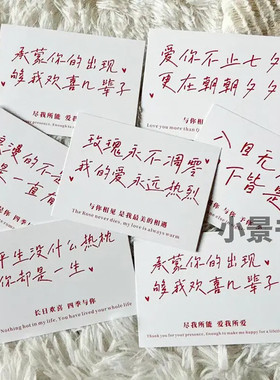 承蒙你的出现
够我欢喜几辈子
尽我所能 爱我所爱
爱你不止七夕
更在朝朝夕夕
与你相
Love you more than
浪漫的不
是一直有
玫瑰永不凋零
我的爱永远热烈
与你相遇 是我最美的相遇
The Rose never dies, my love is always warm
入目无
下皆是
小景
平生没什么热忱
你都是一生
长日欢喜 四季与你
Nothing hot in my life, You have lived your whole life
承蒙你的出现
够我欢喜几辈子
尽我所能 爱我所爱
Thank you for your presence, Enough to make me happy for a lifetime